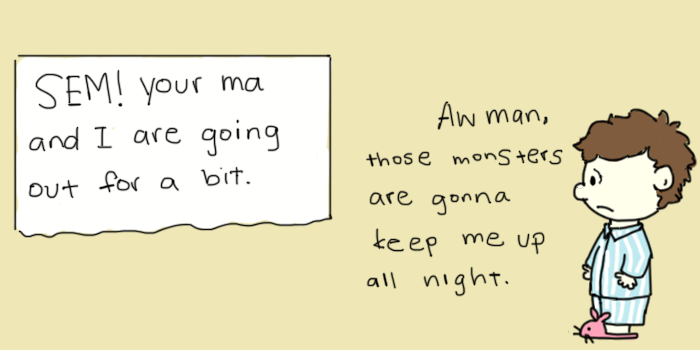 SEM! your ma
and I are going
out for a bit.
Aw man,
those monsters
are gonna
keep me up
all night.